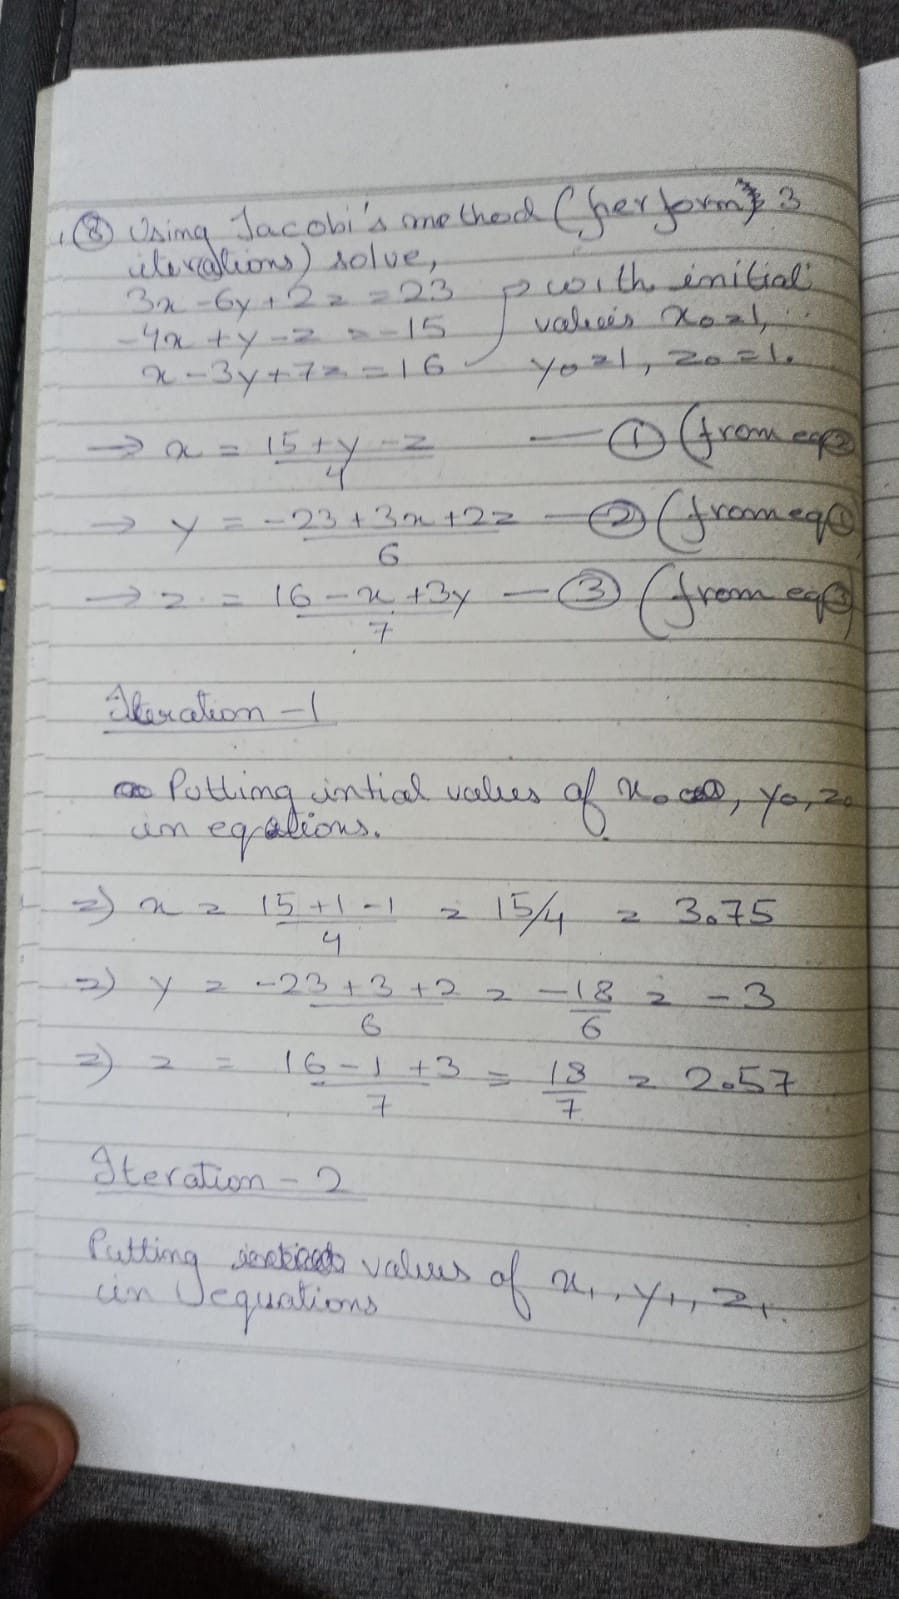 ⑧ Using Jacobi's method (perform 3
iterations) solve,
3x - 6y + 2z = 23 with initial
-4x + y - z = -15 values x₀ = 1,
x - 3y + 7z = 16 y₀ = 1, z₀ = 1.
→ x = 15 + y - z / 4 — ① (from eq②
→ y = -23 + 3x + 2z / 6 — ② (from eq①
→ z = 16 - x + 3y / 7 — ③ (from eq③)
Iteration - 1
Putting intial values of x₀, y₀, z₀
in eqations.
⇒ x = 15 + 1 - 1 / 4 = 15/4 = 3.75
⇒ y = -23 + 3 + 2 / 6 = -18 / 6 = -3
⇒ z = 16 - 1 + 3 / 7 = 18 / 7 = 2.57
Iteration - 2
Putting values of x₁, y₁, z₁
in equations